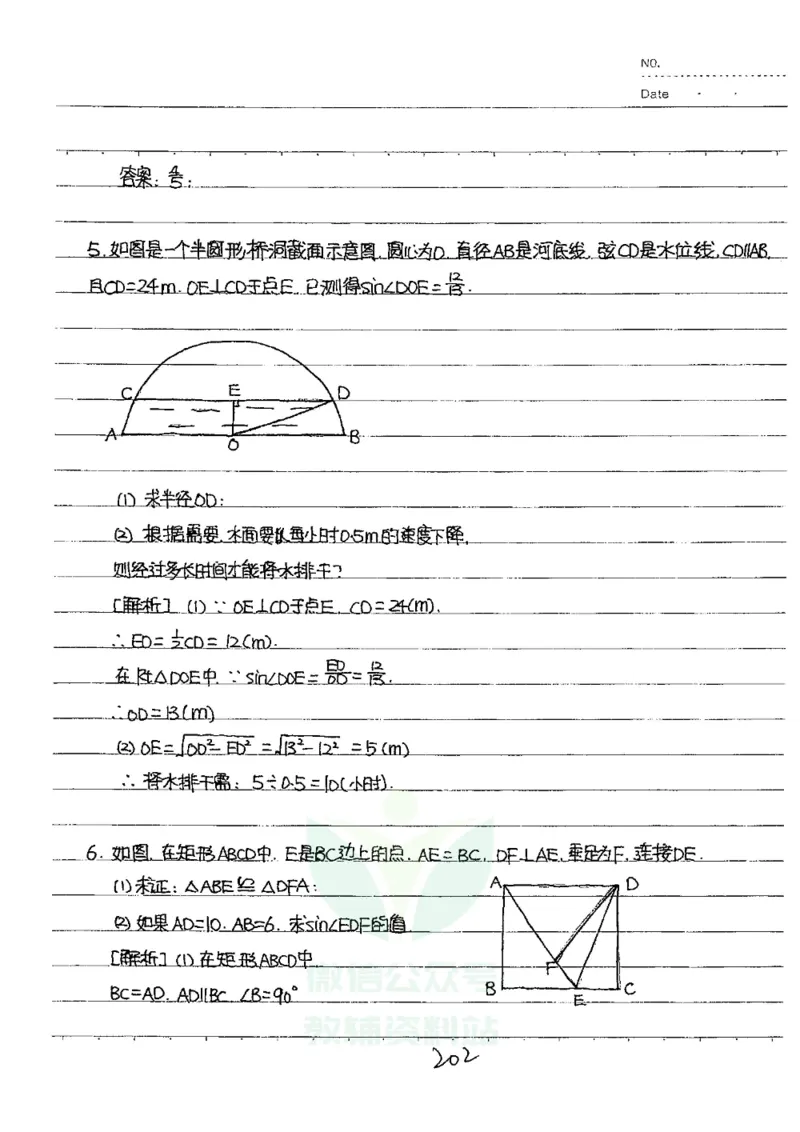 NO.
Date
答案: 4/5;
5.如图是一个半圆形桥洞截面示意图.圆心为O.直径AB是河底线.弦CD是水位线,CD∥AB,
且CD=24m.OE⊥CD于点E.已测得sin∠DOE=12/13.
C E D
A O B
(1) 求半径OD;
(2) 根据需要,水面要以每小时0.5m的速度下降,
则经过多长时间才能将水排干?
[解析] (1) ∵ OE⊥CD于点E. CD=24(m).
∴ED=1/2CD=12(m).
在Rt△DOE中.∵sin∠DOE=ED/OD=12/13.
∴OD=13(m)
(2) OE=√OD²-ED²=√13²-12²=5(m)
∴将水排干需: 5÷0.5=10(小时).
6. 如图.在矩形ABCD中.E是BC边上的点.AE=BC.DF⊥AE,垂足为F.连接DE.
(1)求证:△ABE≌△DFA;
(2)如果AD=10.AB=6.求sin∠EDF的值.
[解析] (1) 在矩形ABCD中
BC=AD.AD∥BC.∠B=90°
A D
F
B E C
微信公众号
教辅资料站
202